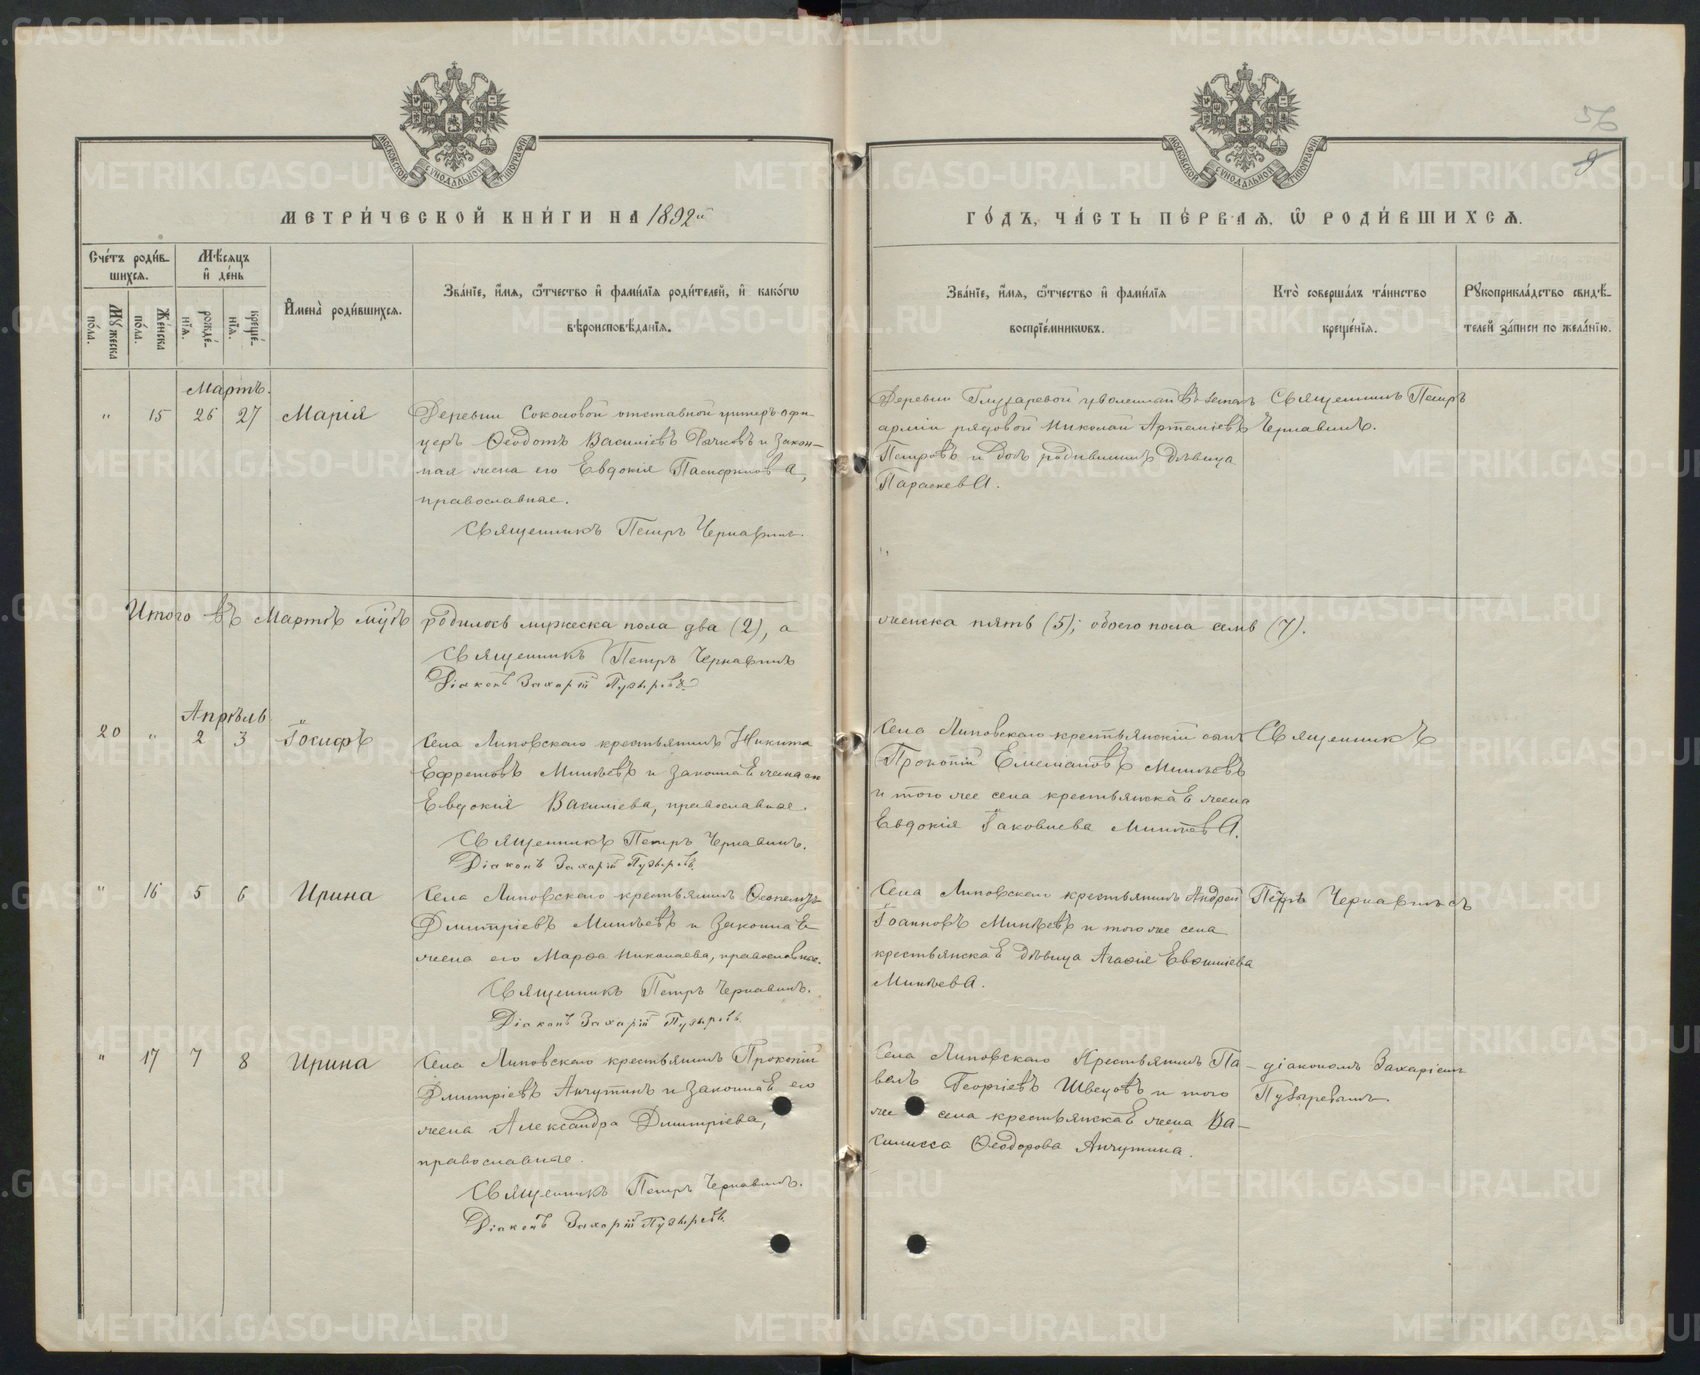 56
9
МОСКОВСКОЙ СѴНОДАЛЬНОЙ ТИПОГРАФІИ
МОСКОВСКОЙ СѴНОДАЛЬНОЙ ТИПОГРАФІИ
МЕТРИ́ЧЕСКОЙ КНИ́ГИ НА 1892й
ГО́ДЪ, ЧА́СТЬ ПЕ́РВАЯ, Ѡ РОДИ́ВШИХСЯ.
Сче́тъ роди́в-
шихся.
Мѣ́сяцъ
и҆ де́нь
Мꙋжеска
по́ла.
Же́нска
по́ла.
рожде́-
нїя.
креще́-
нїя.
И҆мена̀ роди́вшихся.
Зва́нїе, и҆́мя, ѻ҆́тчество и҆ фами́лїя роди́телей, и҆ како́гѡ
вѣроисповѣ́данїя.
Зва́нїе, и҆́мя, ѻ҆́тчество и҆ фами́лїя
воспрїе́мникѡвъ.
Кто̀ соверша́лъ та́инство
креще́нїя.
Рꙋкоприкла́дство свидѣ́-
телей за́писи по жела́нїю.
Мартъ.
" 15 26 27 Марія
Деревни Соколовой отставной унтеръ офи-
церъ Ѳеодотъ Василіевъ Рячковъ и закон-
ная жена его Евдокія Панфилова,
православные.
Священникъ Петръ Чернавинъ.
Деревни Глухаревой уволенный въ запасъ
арміи рядовой Николай Артеміевъ
Петровъ и дочь родившихъ дѣвица
Параскева.
Священникъ Петръ
Чернавинъ.
Итого въ Мартѣ м͠цѣ родилось мужеска пола два (2), а
женска пять (5); обоего пола семь (7).
Священникъ Петръ Чернавинъ
Діаконъ Захарій Пузыревъ
Апрѣль
20 " 2 3 Іосифъ
Села Липовскаго крестьянинъ Никита
Ефремовъ Минѣевъ и законная жена его
Евдокія Василіева, православные.
Священникъ Петръ Чернавинъ.
Діаконъ Захарій Пузыревъ.
Села Липовскаго крестьянскій сынъ
Прокопій Емеліановъ Минѣевъ
и того же села крестьянская жена
Евдокія Іаковлева Минѣева.
Священникъ
" 16 5 6 Ирина
Села Липовскаго крестьянинъ Ѳеопемптъ
Димитріевъ Минѣевъ и законная
жена его Марѳа Николаева, православные.
Священникъ Петръ Чернавинъ.
Діаконъ Захарій Пузыревъ.
Села Липовскаго крестьянинъ Андрей
Іоанновъ Минѣевъ и того же села
крестьянская дѣвица Агаѳія Евѳиміева
Минѣева.
Петръ Чернавинъ съ
" 17 7 8 Ирина
Села Липовскаго крестьянинъ Прокопій
Димитріевъ Анчутинъ и законная его
жена Александра Димитріева,
православные.
Священникъ Петръ Чернавинъ.
Діаконъ Захарій Пузыревъ.
Села Липовскаго Крестьянинъ Па-
велъ Георгіевъ Швецовъ и того
же села крестьянская жена Ва-
силисса Ѳеодорова Анчутина.
діакономъ Захаріемъ
Пузыревымъ.